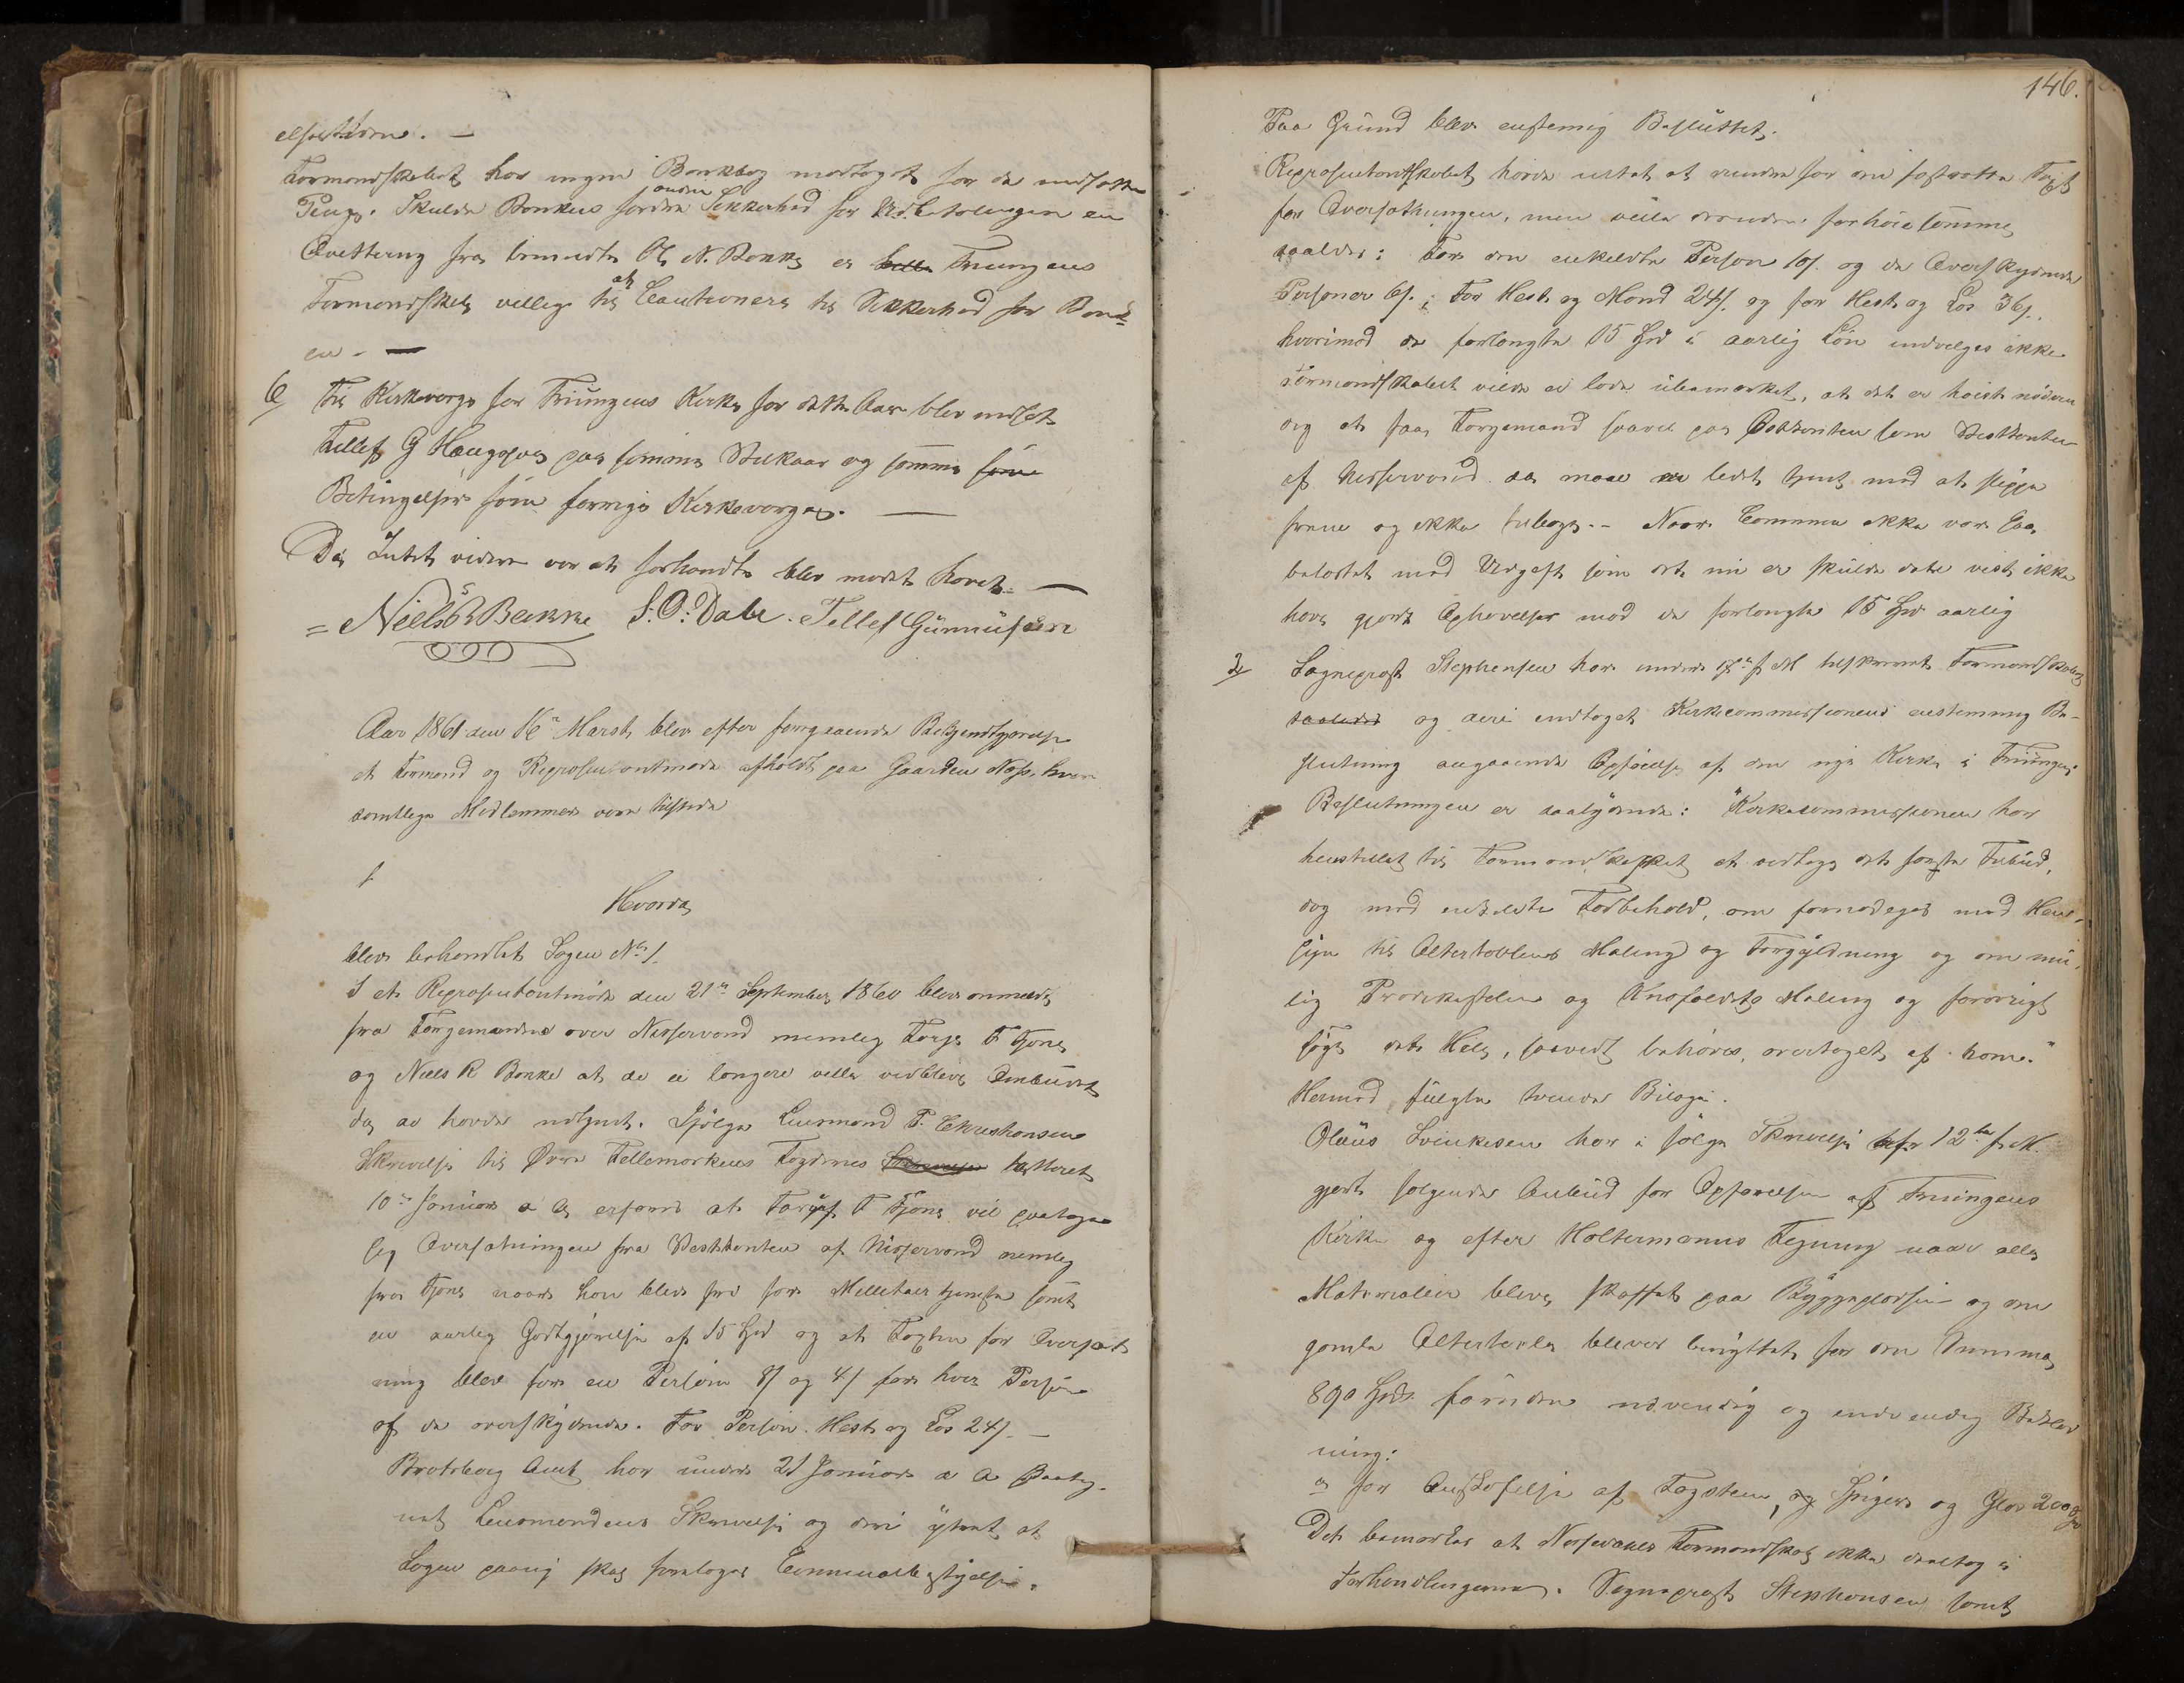 elsestiden. —
Formandskabet har ingen Bankbog modtaget for de indsatte
Penge. Skulde Banken fordre anden Sikkerhed for Udbetalingen en
Qvittering fra bemeldte Ol N. Bakka er Truungens
Formandskab villige til at Cautionere til Sikkerhed for Bank-
en. —
6/ Til Kirkeværge for Truungens Kirke for dette Aar blev indsat
Tellef G Haugsjaa paa samme Vilkaar og samme
Betingelser som forrige Kirkeværge. —
Da Intet videre var at forhandle blev mødet hævet. —
= Niels Bakka S. O. Dale. Tellef Gunnüfsen
Aar 1861 den 16de Marst blev efter foregaaende Bekjendtgjørelse
et Formand og Repræsentantmøde afholdt paa Gaarden Næs, hvor
samtlige Medlemmer vare tilstede
1
Hvorda
blev behandlet Sagen No 1.
I et Repræsentantmøde den 21de September 1860 blev anmeldt
fra Færgemændene over Nisservand nemlig Torje T Tjøns
og Niels R Bakke at de ei længere ville vedblive Ombudet
da de havde udtjent. Ifølge Lensmand P. Christiansens
Skrivelse til Øvre Tellemarkens Fogderie dateret
10de Januar d A erfares at Tarjei T Tjøns vil paatage
sig Oversætningen fra Vestkanten af Nisservand nemlig
fra Tjøns naar han blev fri for Militair tjeneste samt
en aarlig Godtgjørelse af 15 Spd og at Taxten for Oversæt-
ning blev for en Person 8/ og 4/ for hver Person
af de overskydende. For Person. Hest og Læs 24/. —
Bratsberg Amt har under 21 Januar d A paateg-
net Lensmandens Skrivelse og deri yttret at
Sagen paany skal forelægges Communebestyrelsen.
146.
Paa Grund blev eenstemig Besluttet.
Repræsentantskabet havde intet at erindre for den fastsatte Taxt
for Oversætningen, men ville endnu forhøie samme
saaledes: For den enkelte Person 10/. og de Overskydende
Personer 6/.; For Hest og Mand 24/. og for Hest og Læs 36/.
hvorimod de forlangte 15 Spd i aarlig Løn indvilges ikke
Formandskabet vilde ei lade ubemærket, at det er høist nødven
dig at faae Færgemand saavel paa Østkanten som Vestkanten
af Nisservand da man er ledet tjent med at slippe
frem og ikke tilbage. — Naar Communen ikke var saa
belastet med Udgift som det nu er skulde dette vist ikke
have gjort Ophævelser med de forlangte 15 Spd aarlig
2/ Sogneprest Stephensen har under 17de f M tilskrevet Formandskabet
og deri indtaget Kirkecommissionens eenstemmig Be-
slutning angaaende Opførelse af den nye Kirke i Truungen.
Beslutningen er saalydende: "Kirkecommissionen har
henstillet til Formandskabet at vedtage det første Tilbud,
dog med enkelte Forbehold, om fornødiges med Hen-
syn til Altertavlens Maling og Forgyldning og om mu-
lig Prædikestolen og Knæfaldets Maling og forøvrigt
søge det Hele, saavidt behøves, overtaget af ham."
Hermed fulgte tvende Bilage.
Olaus Svinkesen har i følge Skrivelse af 12te f M.
gjort følgende Anbud for Opførelsen af Truungens
Kirke og efter Holtermanns Tegning naar alle
Materialier bleve skaffet paa Byggepladsen og om
gamle Altertavle bliver benyttet for den Summa
890 Spd. foruden udvendig og indvendig Beklæd
ning:
a for Anskafelse af Tagsteen, og Spiger og Glas 200 Spd
Det bemærkes at Nissedals Formandskab ikke deeltog i
Forhandlingerne. Sogneprest Stephensen samt